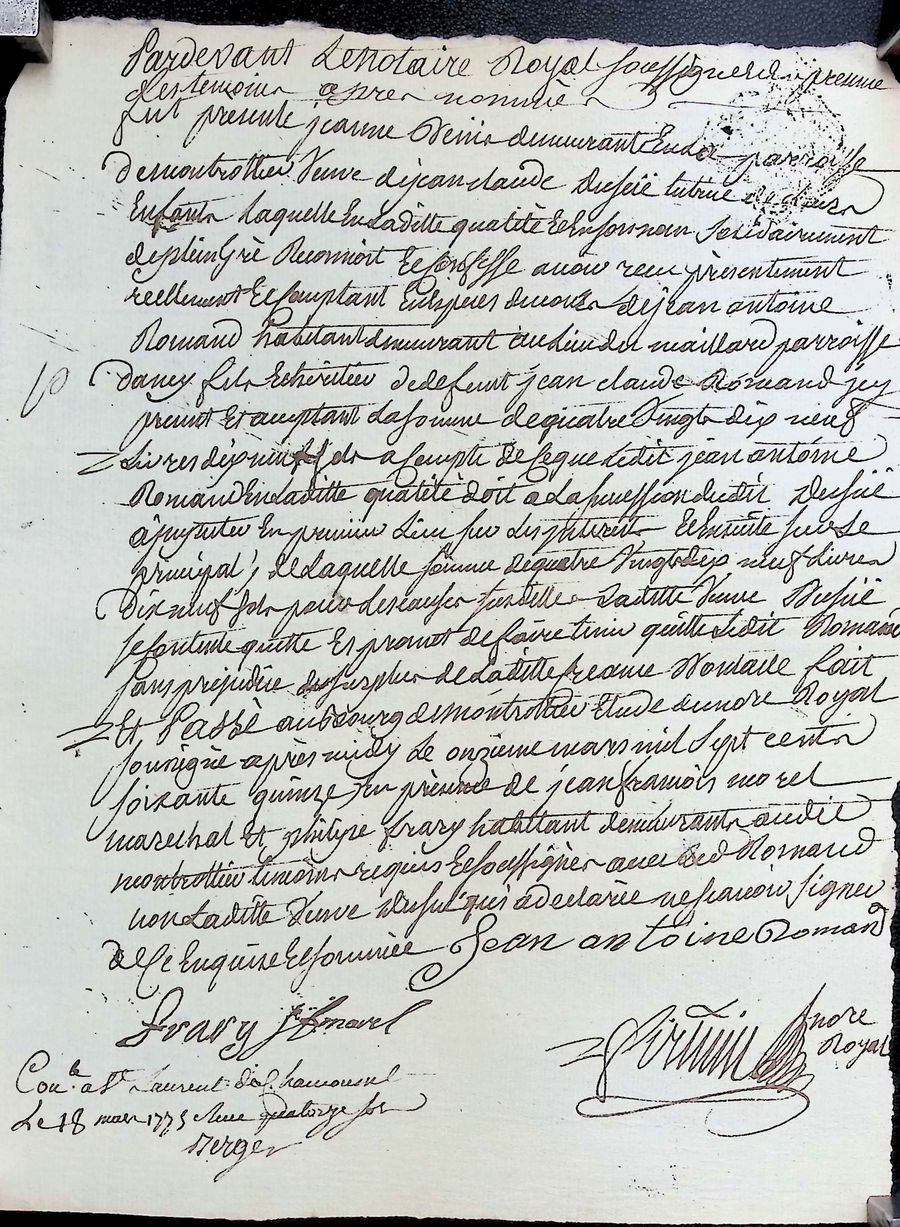 Pardevant Le notaire Royal soussigné et en presence
des temoins apres nommés
fut presente jeanne Denis demeurante En la parroisse
de montrottier Veuve de jean claude Dussuë tutrice de leurs
Enfants laquelle En laditte qualité Et En son nom solidairement
de plein gré Reconnoit Et confesse avoir recu présentement
reellement Et comptant En Especes de cours de jean antoine
Romand habitant demeurant au lieu du maillard parroisse
dancy fils Et héritier de defeunt jean claude Romand jcy
present Et acceptant La somme de quatre Vingt dix neuf
Livres dix neuf sols a Compte de Ce que Ledit jean antoine
Romand En laditte qualité doit a La succession dudit Dussuë
a jmputer En premier Lieu sur Les jnterets Et Ensuite sur Le
principal, de Laquelle somme de quatre Vingt dix neuf Livres
Dix neuf sols pour les causes susdittes Laditte Veuve Dussuë
se contente quitte Et promet de faire tenir quitte Ledit Romand
sans prejudice du surplus de Laditte creance Dont acte fait
Et Passé au bourg de Montrottier Etude du nore Royal
soussigné apres midy Le onzieme mars mil sept cents
soixante quinze En présence de jean francois morel
marechal Et philipe frary habitant demeurants audit
montrottier temoins requis Et soussignés avec led Romand
non Laditte Veuve Dussuë qui a declarée ne scavoir signer
de Ce Enquise Et sommée Jean antoine Romand
frary jf morel
nore
Royal
Con.le a St Laurent de Chamousset
Le 18 mars 1775 Recu quatorze sols
Berger